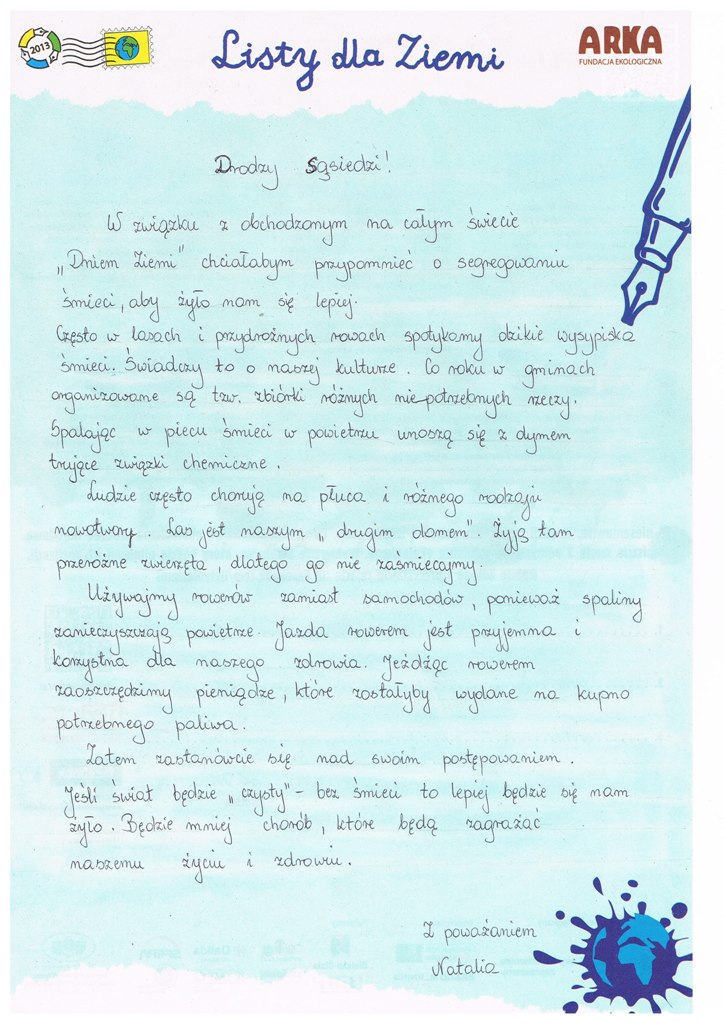 2013
Listy dla Ziemi
ARKA
FUNDACJA EKOLOGICZNA
Drodzy Sąsiedzi!
W związku z obchodzonym na całym świecie
„Dniem Ziemi" chciałabym przypomnieć o segregowaniu
śmieci, aby żyło nam się lepiej.
Często w lasach i przydrożnych rowach spotykamy dzikie wysypiska
śmieci. Świadczy to o naszej kulturze. Co roku w gminach
organizowane są tzw. zbiórki różnych niepotrzebnych rzeczy.
Spalając w piecu śmieci w powietrzu unoszą się z dymem
trujące związki chemiczne.
Ludzie często chorują na płuca i różnego rodzaju
nowotwory. Las jest naszym „drugim domem". Żyją tam
przeróżne zwierzęta, dlatego go nie zaśmiecajmy.
Używajmy rowerów zamiast samochodów, ponieważ spaliny
zanieczyszczają powietrze. Jazda rowerem jest przyjemna i
korzystna dla naszego zdrowia. Jeżdżąc rowerem
zaoszczędzimy pieniądze, które zostałyby wydane na kupno
potrzebnego paliwa.
Zatem zastanówcie się nad swoim postępowaniem.
Jeśli świat będzie „czysty" - bez śmieci to lepiej będzie się nam
żyło. Będzie mniej chorób, które będą zagrażać
naszemu życiu i zdrowiu.
Z poważaniem
Natalia